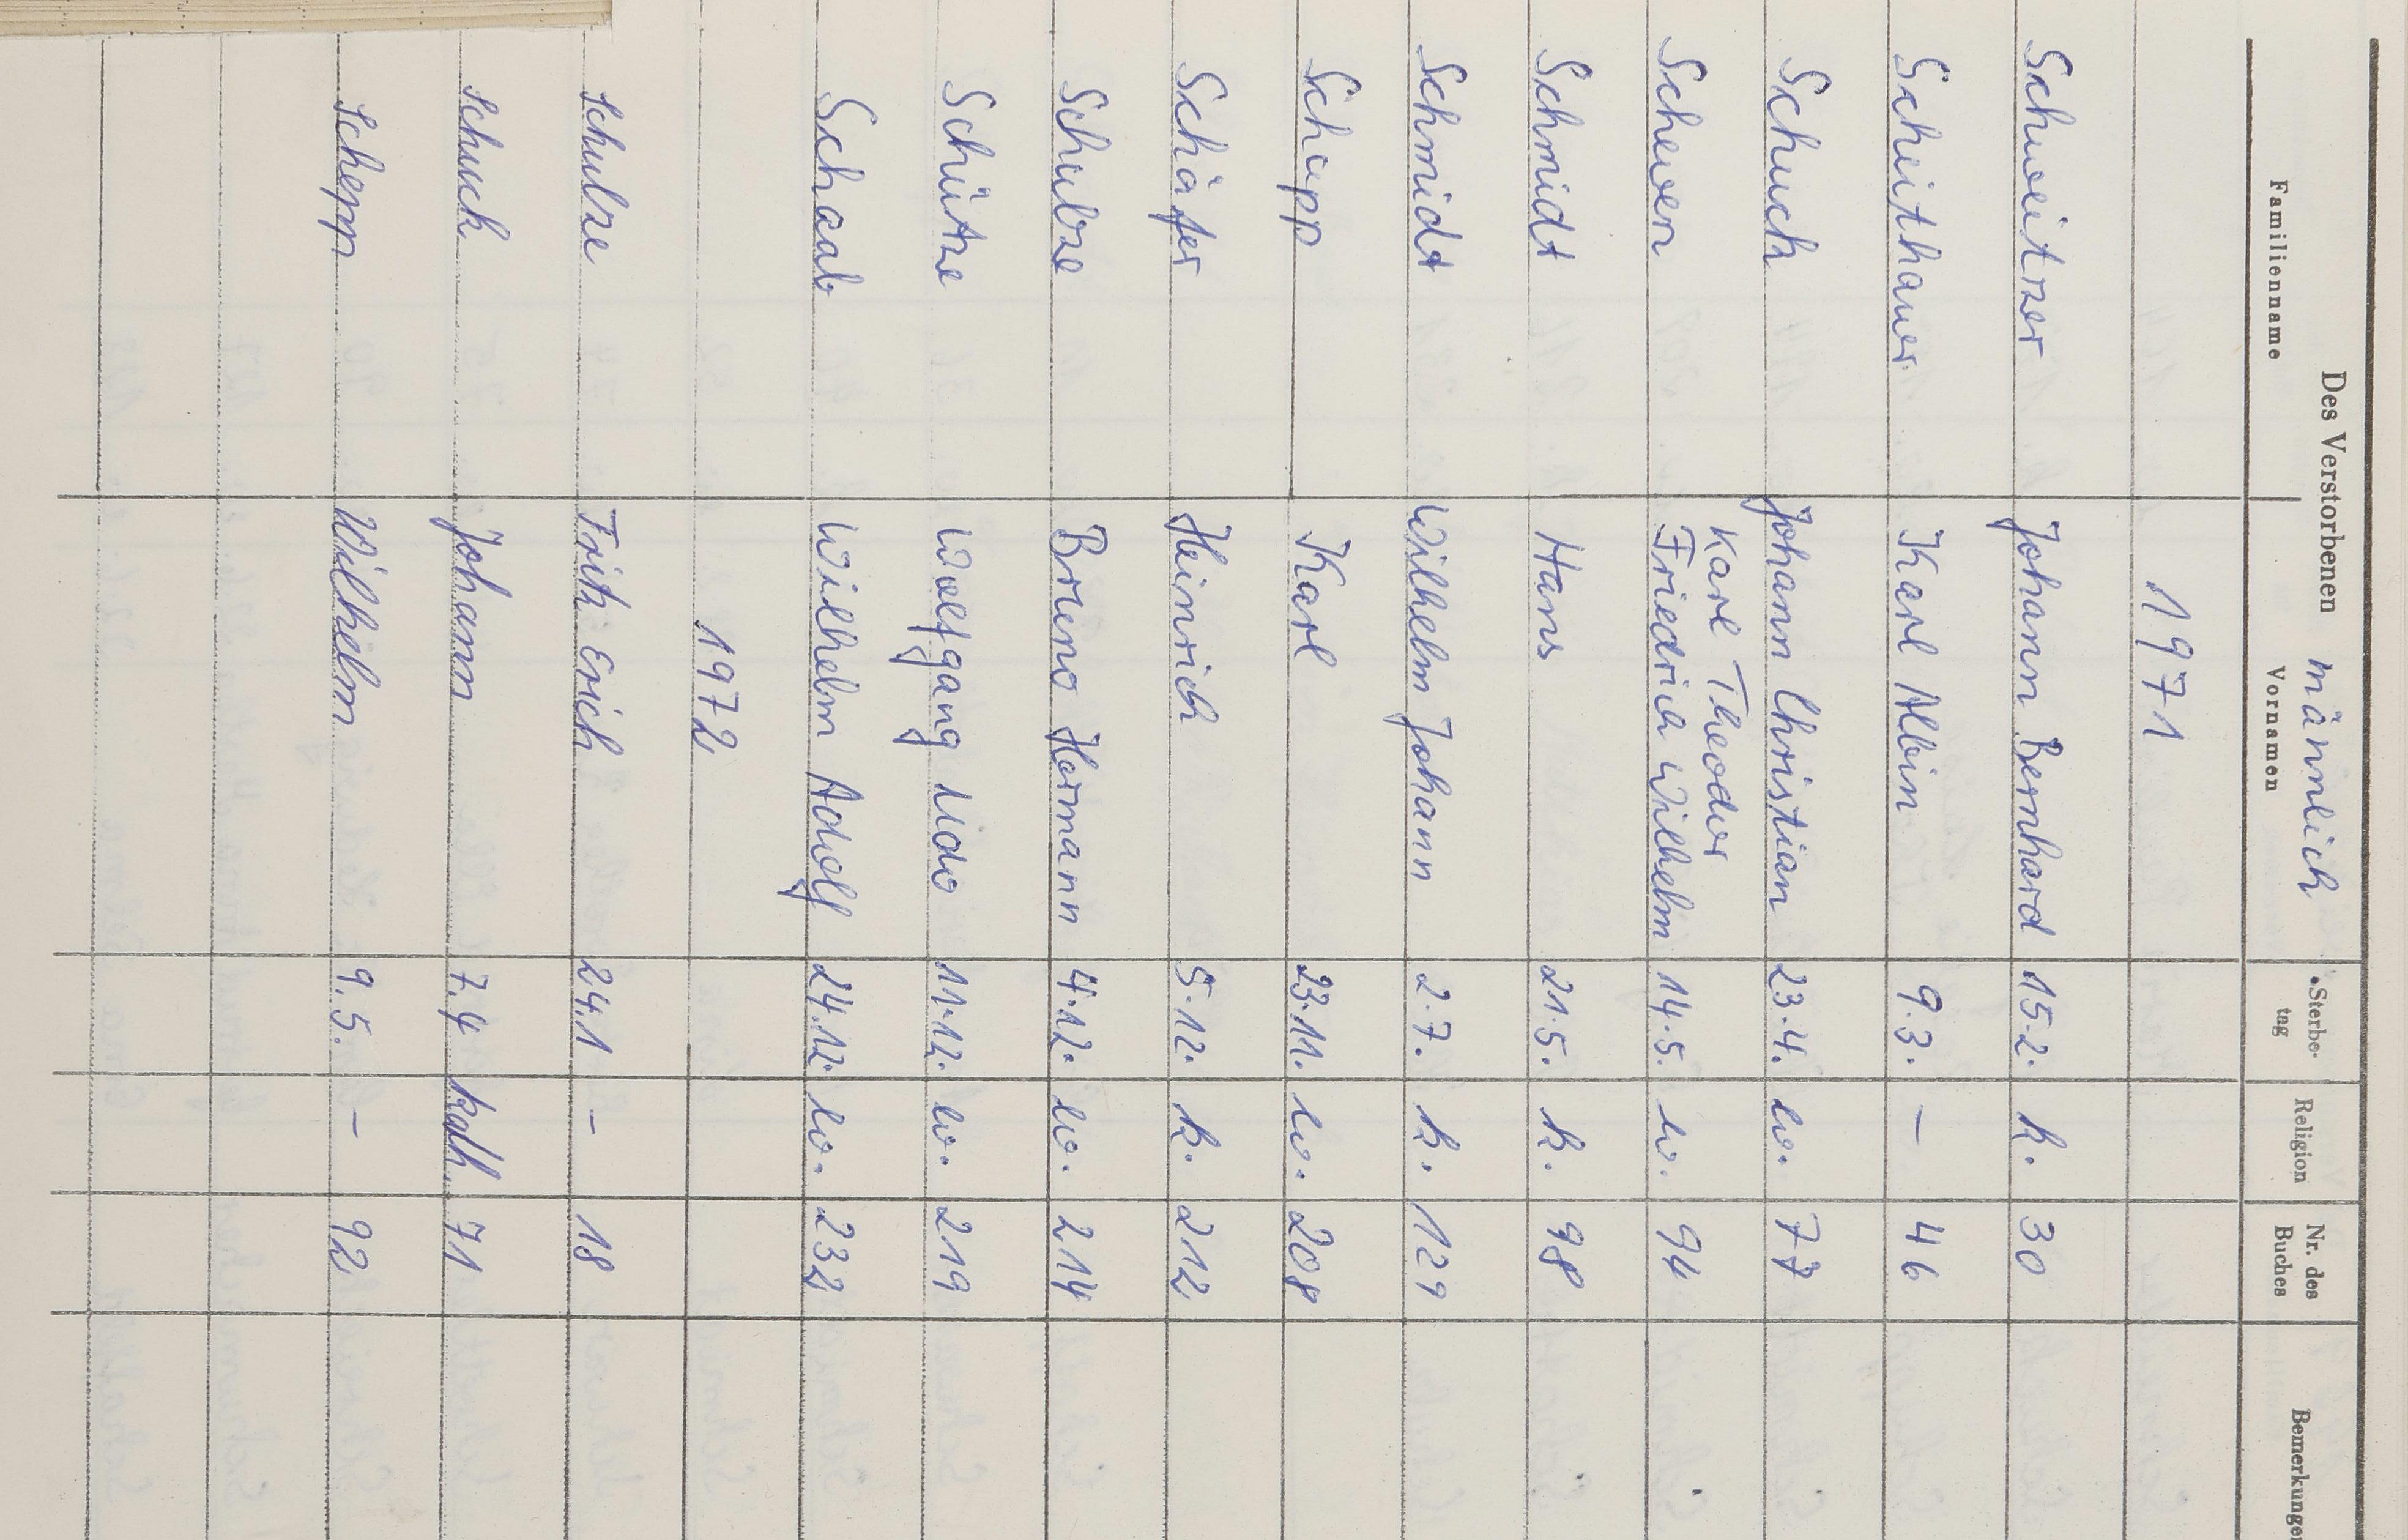 Des Verstorbenen männlich
Familienname Vornamen Sterbe-tag Religion Nr. des Buches Bemerkungen
1971
Schweitzer Johann Bernhard 15.2. k. 30
Scheithauer Karl Albin 9.3. – 46
Schuch Johann Christian 23.4. ev. 77
Karl Theodor
Scheven Friedrich Wilhelm 14.5. ev. 94
Schmidt Hans 21.5. k. 98
Schmidt Wilhelm Johann 2.7. k. 129
Schapp Karl 23.11. ev. 208
Schäfer Heinrich 5.12. k. 212
Schulze Bruno Hermann 4.12. ev. 214
Schütze Wolfgang Udo 11.12. ev. 219
Schaab Wilhelm Adolf 24.12. ev. 232
1972
Schulze Fritz Erich 24.1 – 18
Schuck Johann 7.4 kath. 71
Schepp Wilhelm 9.5. – 92